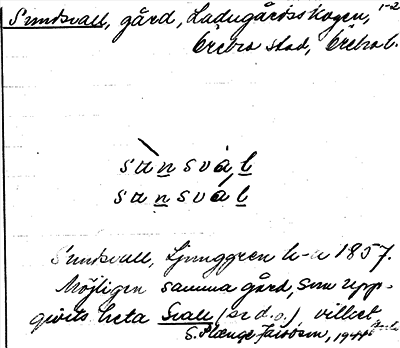 Sundsvall, gård, Ladugårdsskogen, 1-2
Örebro stad, Örebro l.
sànsvá,l
sansval
Sundsvall, Ljunggren h-a 1857.
Möjligen samma gård, som upp-
givits heta Svall (se d.o.) vilket
S. Plænge Jacobson, 1944